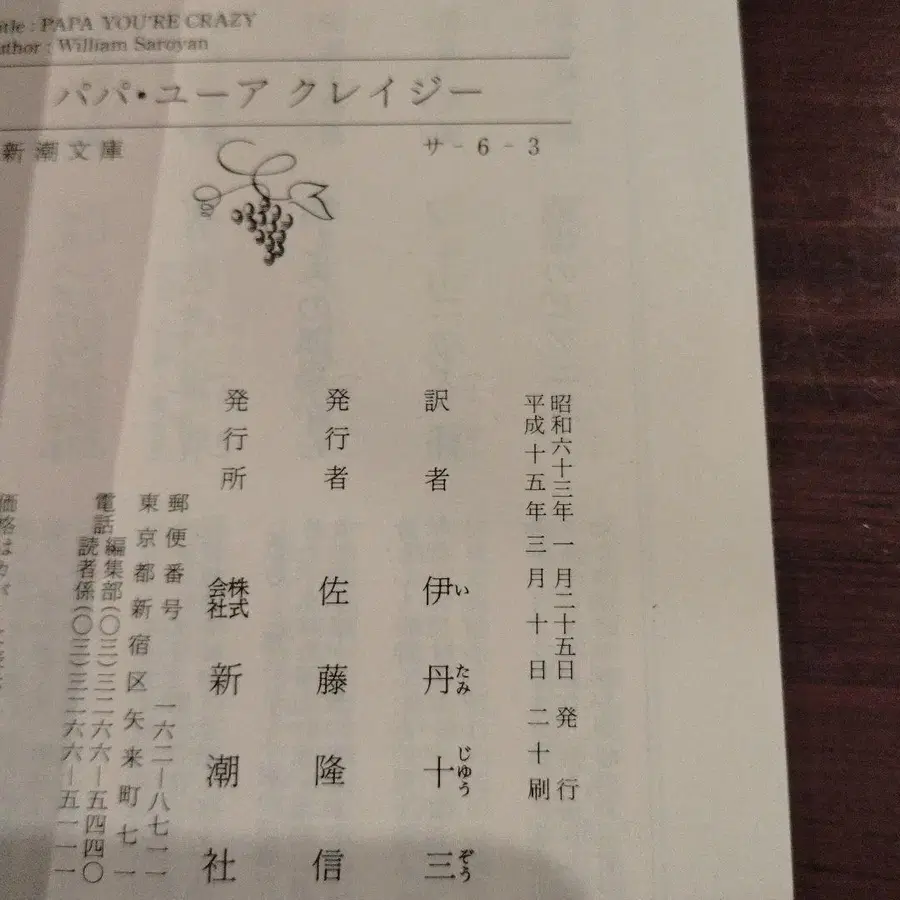 itle : PAPA YOU'RE CRAZY
uthor : William Saroyan
パパ・ユーア クレイジー
新潮文庫
サ-6-3
昭和六十三年 一月二十五日 発行
平成十五年 三月 十日 二十刷
訳者 伊丹十三
いたみじゅうぞう
発行者 佐藤隆信
発行所 株式会社 新潮社
郵便番号 一六二―八七一一
東京都新宿区矢来町七一
電話 編集部(〇三)三二六六―五四四〇
読者係(〇三)三二六六―五一一一
価格は